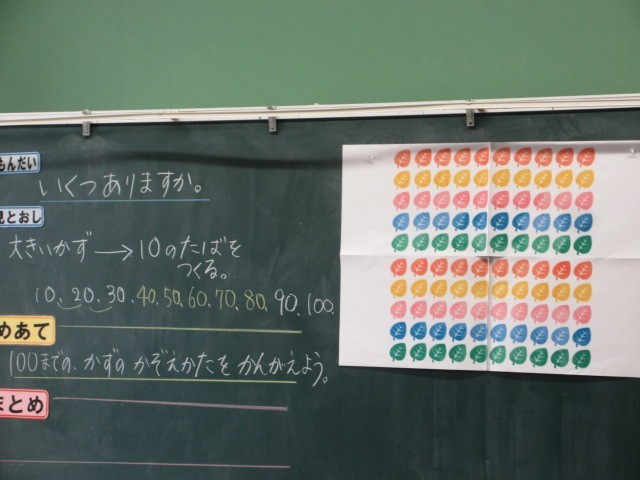 もんだい
いくつありますか。
見とおし
大きいかず→10のたばを
つくる。
10、20、30、40、50、60、70、80、90、100
めあて
100までの、かずの かぞえかたを かんがえよう。
まとめ